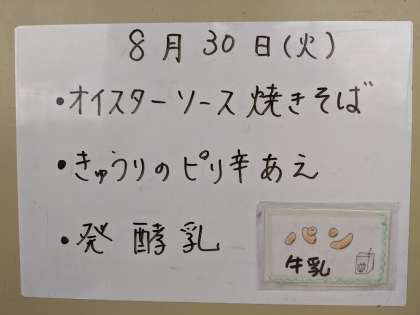 8月30日(火)
・オイスターソース焼きそば
・きゅうりのピリ辛あえ
・発酵乳
パン
牛乳